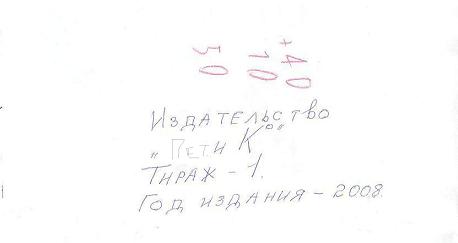 +40
10
50
Издательство
„Пети К°“
Тираж – 1.
Год издания – 2008.